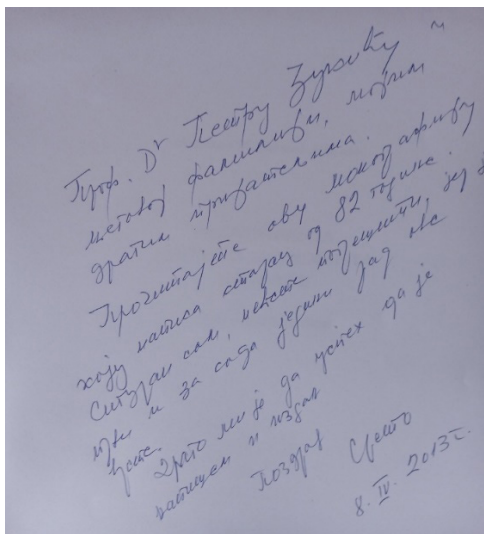 Проф. Dr Петру
његовој фамилији, мојим
драгим пријатељима.
Прочитајте ову монографију
коју написа старац од 82 године.
Сигуран сам, нећете погрешити, јер је
и за сада једини рад ове
врсте.
Драго ми је да успех да је
напишем и
Поздрав Срето
8. IV. 2013 г.